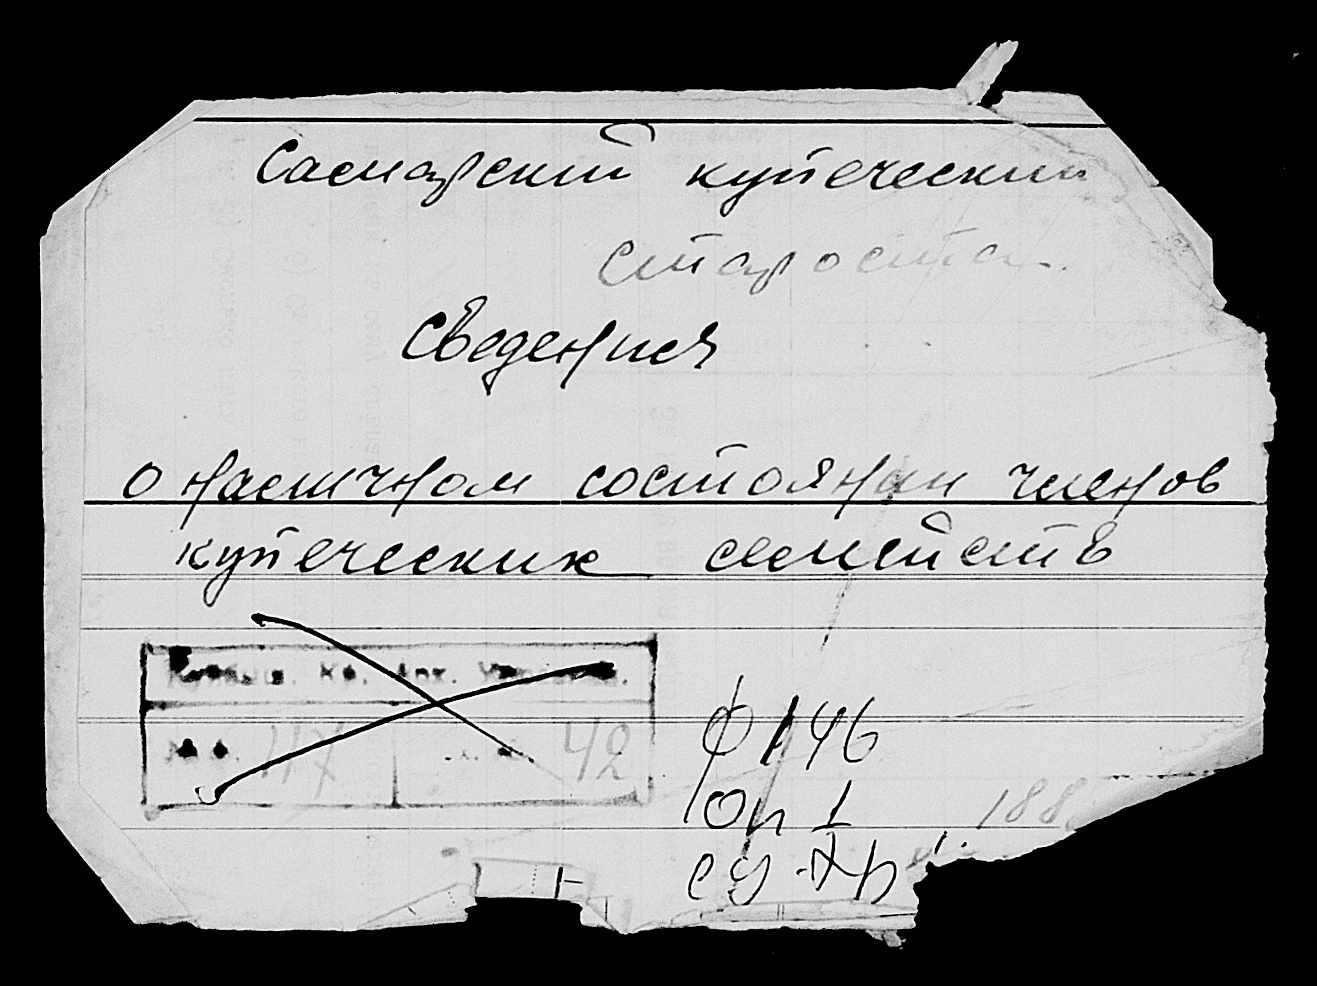 Самарский купеческий
староста.
Сведения
о наличном состоянии членов
купеческих семейств
Куйбыш. Кр. Арх. Управлен.
42
Ф 146
Оп 1
188